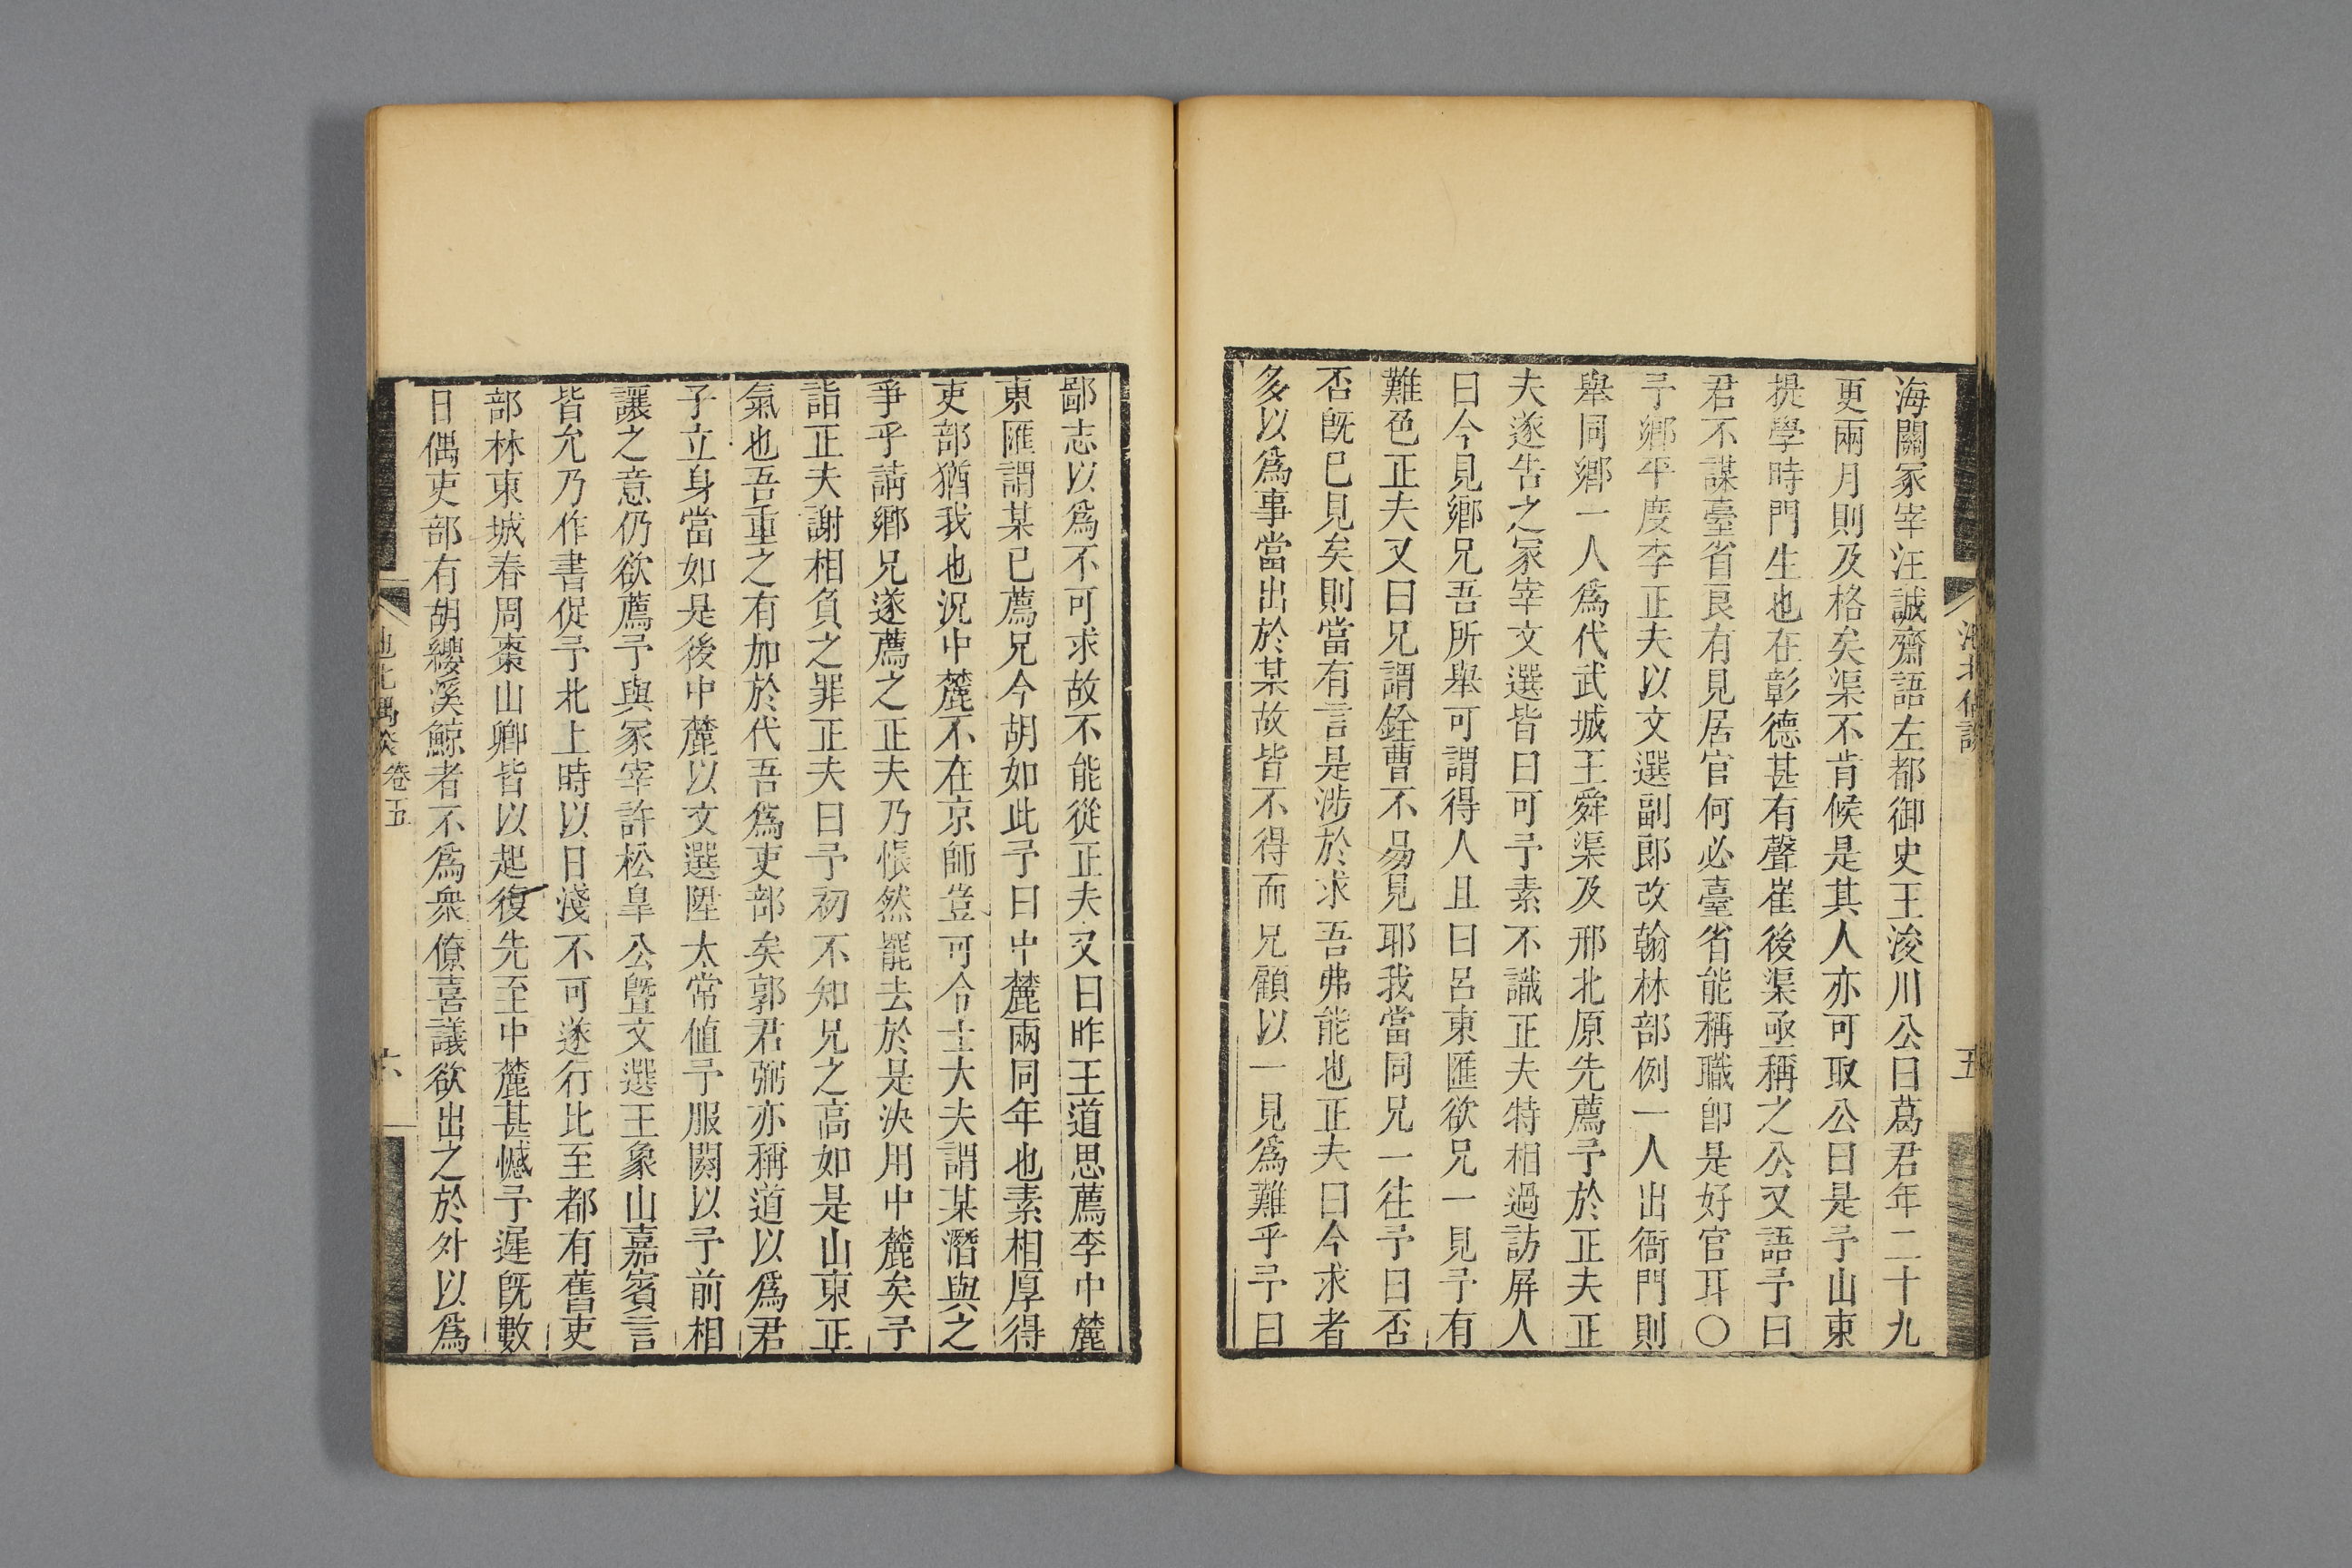 池北偶談
五
海關冢宰汪誠齋語左都御史王浚川公曰葛君年二十九
更兩月則及格矣渠不肯候是其人亦可取公曰是予山東
提學時門生也在彰德甚有聲崔後渠亟稱之公又語予曰
君不謀臺省良有見居官何必臺省能稱職卽是好官耳〇
予鄉平度李正夫以文選副郎改翰林部例一人出衙門則
舉同鄉一人爲代武城王舜渠及邢北原先薦予於正夫正
夫遂告之冢宰文選皆曰可予素不識正夫特相過訪屏人
曰今見鄉兄吾所舉可謂得人且曰呂東匯欲兄一見予有
難色正夫又曰兄謂銓曹不易見耶我當同兄一往予曰否
否旣已見矣則當有言是涉於求吾弗能也正夫曰今求者
多以爲事當出於某故皆不得而兄顧以一見爲難乎予曰
鄙志以爲不可求故不能從正夫又曰昨王道思薦李中麓
東匯謂某已薦兄今胡如此予曰中麓兩同年也素相厚得
吏部猶我也況中麓不在京師豈可令士大夫謂某潛與之
爭乎請鄉兄遂薦之正夫乃悵然罷去於是決用中麓矣予
詣正夫謝相負之罪正夫曰予初不知兄之高如是山東正
氣也吾重之有加於代吾爲吏部矣郭君弼亦稱道以爲君
子立身當如是後中麓以文選陞太常値予服闋以予前相
讓之意仍欲薦予與冢宰許松皐公曁文選王象山嘉賓言
皆允乃作書促予北上時以日淺不可遂行比至都有舊吏
部林東城春周棗山卿皆以起復先至中麓甚憾予遲旣數
日偶吏部有胡纓溪鯨者不爲衆僚喜議欲出之於外以爲
池北偶談
卷五
六